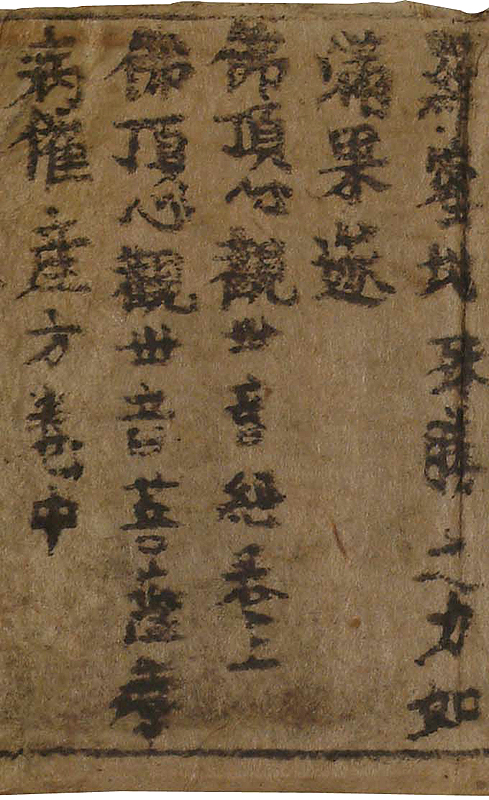 羅蜜地殊勝之力如
滿果遂
佛頂心觀世音經卷上
佛頂心觀世音菩薩療
病催産方卷中